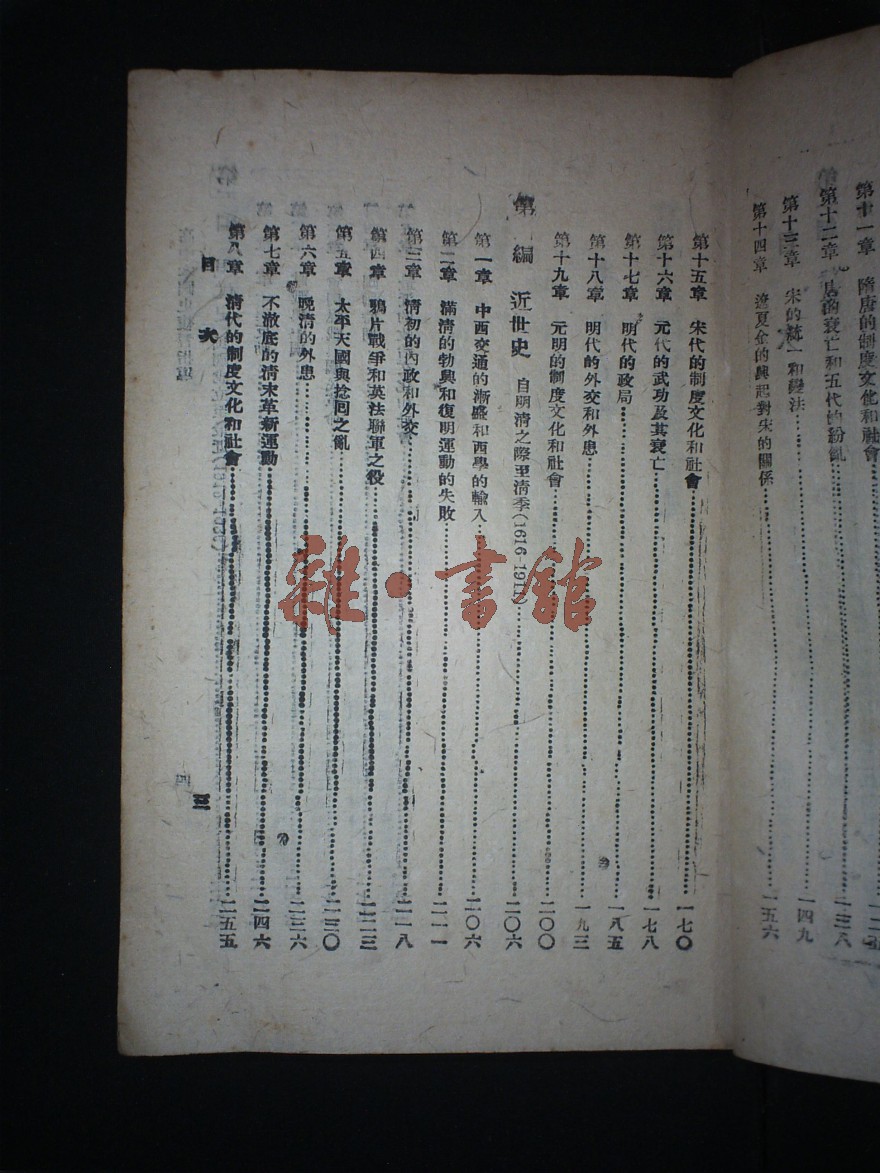 第十一章 隋唐的制度文化和社會
第十二章 唐的衰亡和五代的紛亂 一三八
第十三章 宋的統一和變法 一四九
第十四章 遼夏金的興起對宋的關係 一五六
第十五章 宋代的制度文化和社會 一七〇
第十六章 元代的武功及其衰亡 一七八
第十七章 明代的政局 一八五
第十八章 明代的外交和外患 一九三
第十九章 元明的制度文化和社會 二〇〇
第 編 近世史 自明清之際至清季(1616-1911) 二〇六
第一章 中西交通的漸盛和西學的輸入 二〇六
第二章 滿清的勃興和復明運動的失敗 二一一
第三章 清初的內政和外交 二一八
第四章 鴉片戰爭和英法聯軍之役 二二三
第五章 太平天國與捻回之亂 二三〇
第六章 晚清的外患 二三六
第七章 不澈底的清末革新運動 二四六
第八章 清代的制度文化和社會 二五五
目次 三
雜·書館